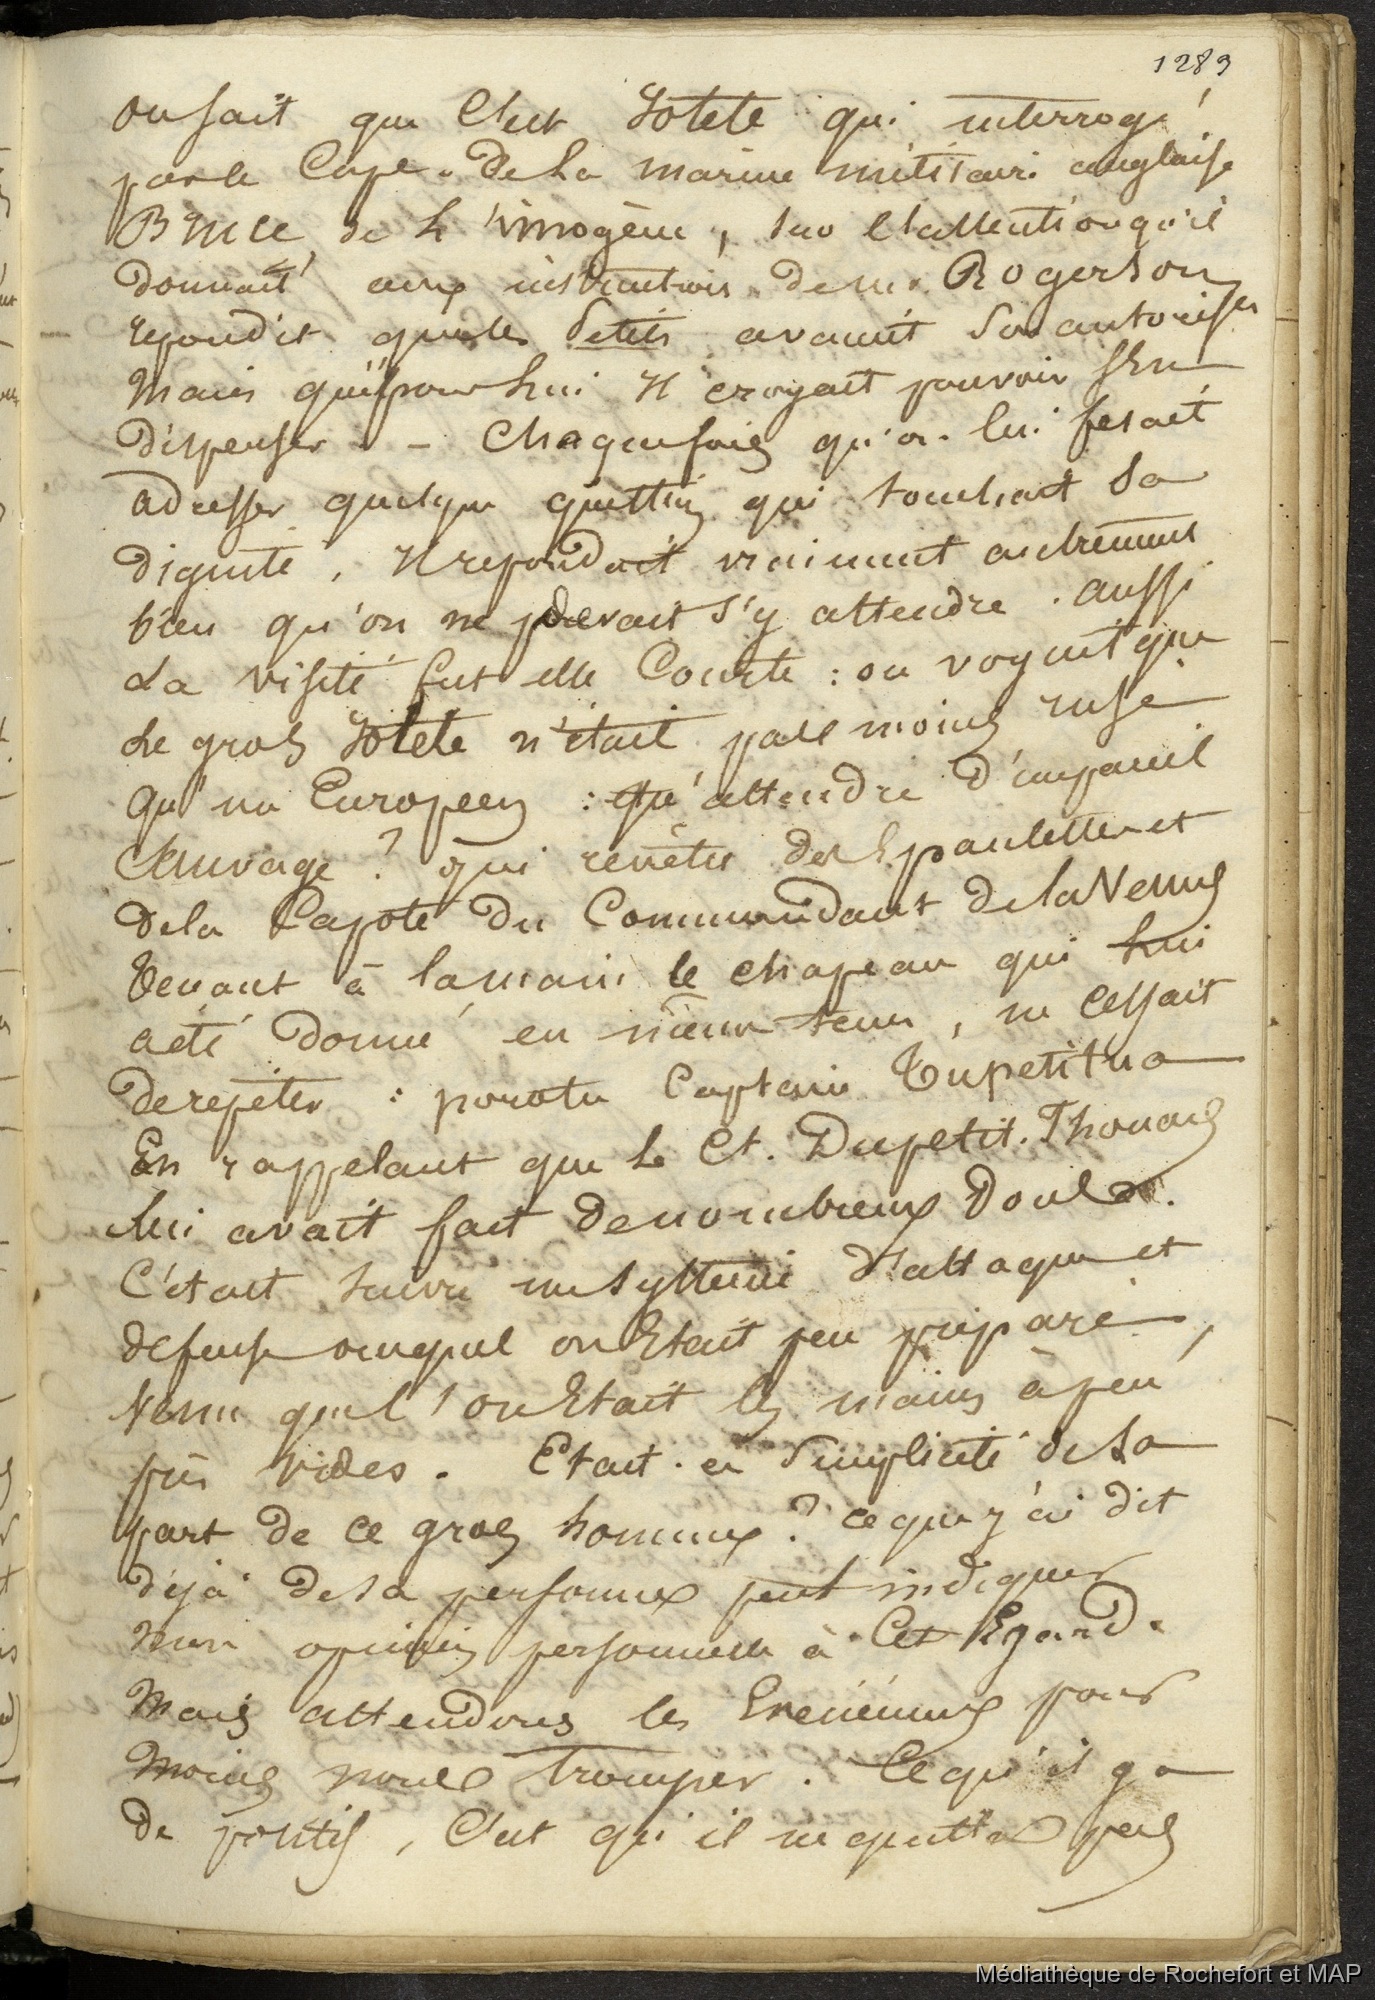 1289
on sait que C'est Iotete qui interrogé
par le Cape. de la marine militaire anglaise
Bruce de L'imogène, sur l'attention qu'il
donnait aux instructions de mr. Rogerson
repondit que les Petits avaient
Mais que pour Lui Il croyait pouvoir s'En
dispenser. - Chaque fois qu'on lui fesait
adresser quelque question qui touchait sa
dignité, Il repondait vraiment autrement
bien qu'on ne devait s'y attendre. aussi
La visite fut elle Courte : on voyait que
Le gros Iotete n'était pas moins rusé
qu'un Européen : qu'attendre d'un pareil
Sauvage ? qui revêtu des Epaulettes et
de la Capote du Commandant de la Venus
Tenant à la main le chapeau qui lui
a été donné en même tems, ne Cessait
de repéter : porotu Captain Tupetitua
En rappelant que Le Ct. Dupetit-Thouars
lui avait fait de nombreux Dons.
C'etait suivre un systeme d'attaque et
defense auquel on Etait peu préparé,
Venu que l'on Etait les mains à peu
près vides. Etait-ce Simplicité de la
part de ce gros homme ? ce que j'ai dit
déjà de sa personne peut indiquer
mon opinion personnelle à Cet Egard.
Mais attendons les Evenemens pour
Moins nous Tromper. Ce qu'il y a
de positif, C'est qu'il ne quitta pas
Médiathèque de Rochefort et MAP